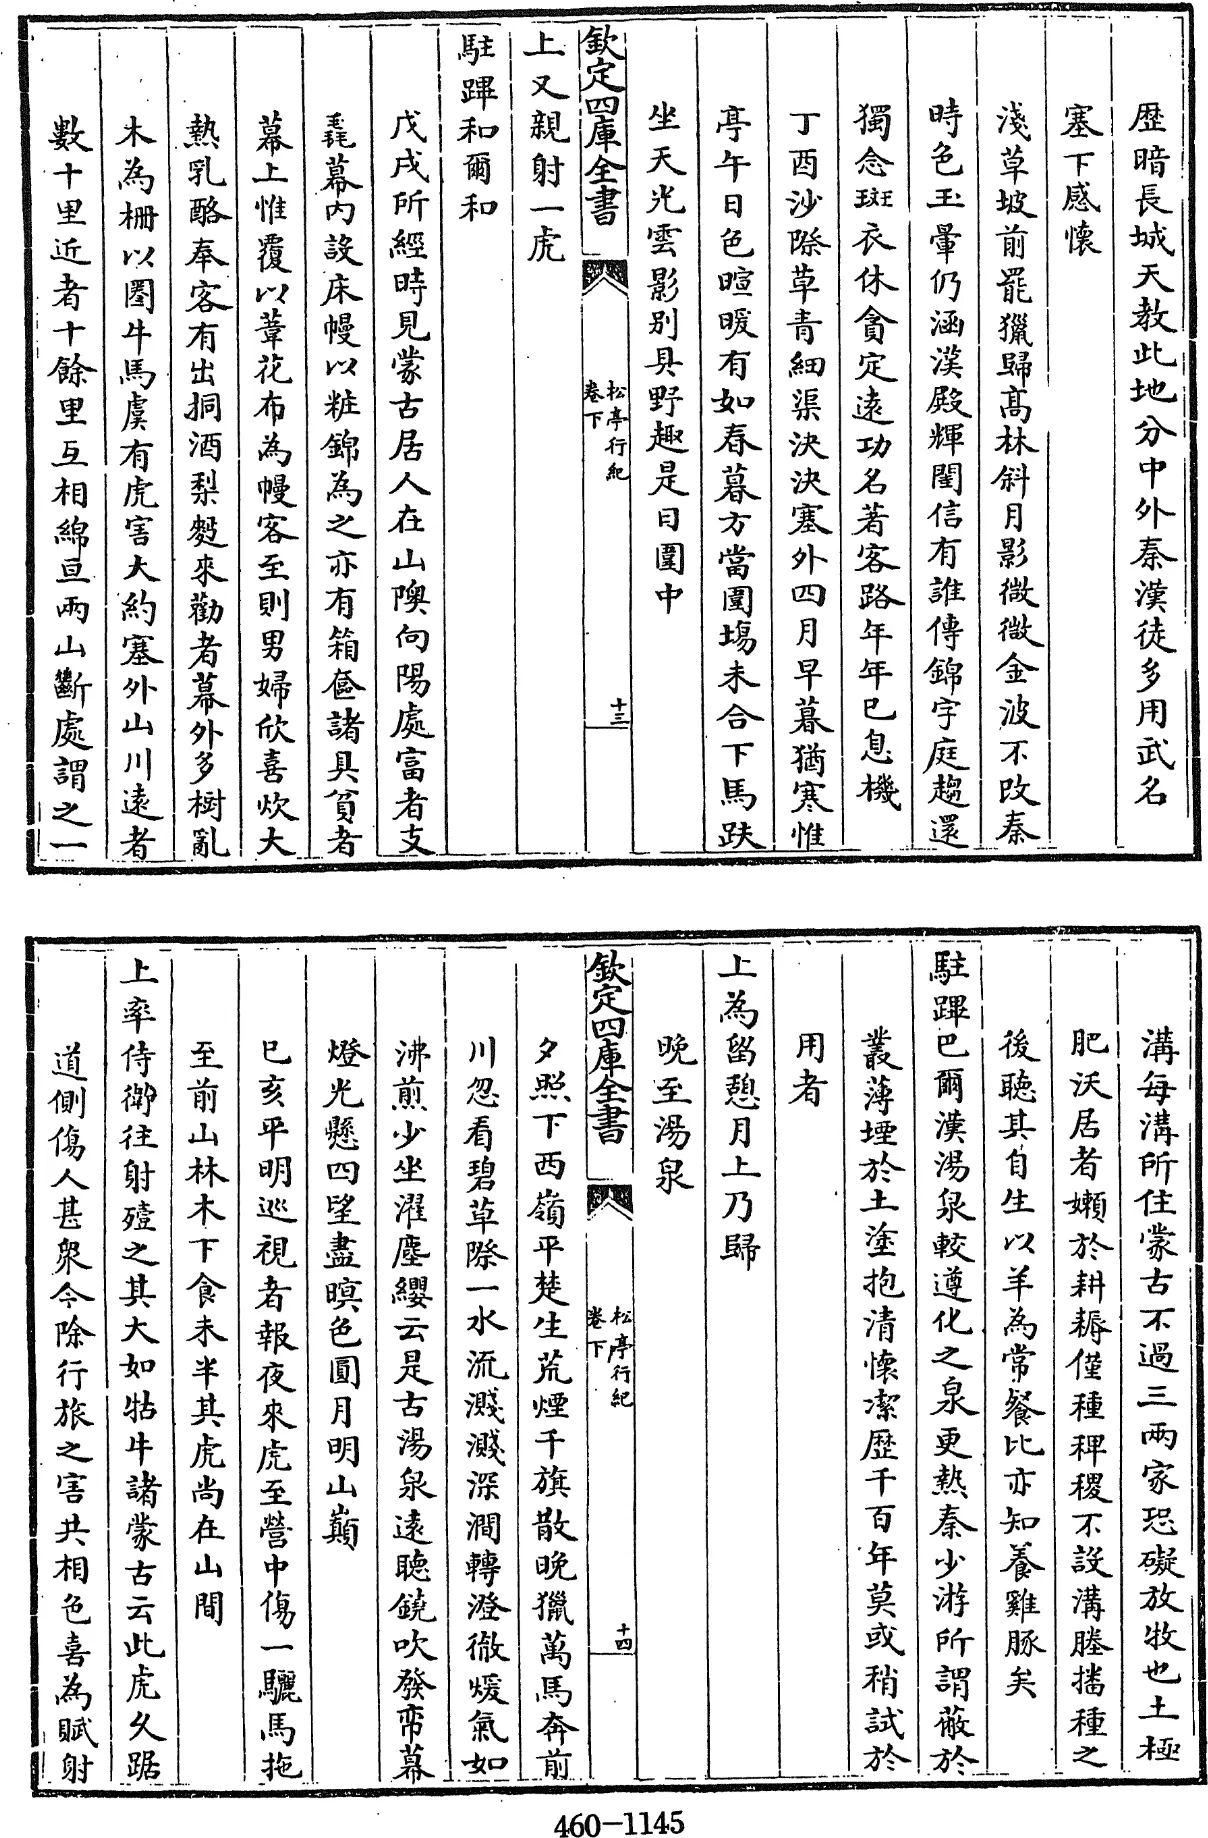 歴暗長城天教此地分中外秦漢徒多用武名
塞下感懷
淺草坡前罷獵歸高林斜月影微微金波不改秦
時色玉暈仍涵漢殿輝閨信有誰傳錦字庭趨還
獨念斑衣休貪定遠功名著客路年年已息機
丁酉沙際草青細渠決決塞外四月早暮猶寒惟
亭午日色暄暖有如春暮方當圍場未合下馬趺
坐天光雲影别具野趣是日圍中
欽定四庫全書
松亭行紀
卷下
十三
上又親射一虎
駐蹕和爾和
戊戌所經時見蒙古居人在山隩向陽處富者支
氊幕内設床幔以粧錦為之亦有箱奩諸具貧者
幕上惟覆以葦花布為幔客至則男婦欣喜炊大
熱乳酪奉客有出挏酒梨麨來勸者幕外多樹亂
木為柵以圏牛馬虞有虎害大約塞外山川遠者
數十里近者十餘里互相綿亘兩山斷處謂之一
溝每溝所住蒙古不過三兩家恐礙放牧也土極
肥沃居者嬾於耕耨僅種稗稷不設溝塍播種之
後聽其自生以羊為常餐比亦知養雞豚矣
駐蹕巴爾漢湯泉較遵化之泉更熱秦少游所謂蔽於
叢薄堙於土塗抱清懷潔歴千百年莫或稍試於
用者
上為留憩月上乃歸
晩至湯泉
欽定四庫全書
松亭行紀
卷下
十四
夕照下西嶺平楚生荒煙千旗散晩獵萬馬奔前
川忽看碧草際一水流濺濺深澗轉澄徹煖氣如
沸煎少坐濯塵纓云是古湯泉遠聽鐃吹發帟幕
燈光懸四望盡暝色圓月明山巔
巳亥平明巡視者報夜來虎至營中傷一驪馬拖
至前山林木下食未半其虎尚在山間
上率侍衛往射殪之其大如牯牛諸蒙古云此虎久踞
道側傷人甚衆今除行旅之害共相色喜為賦射
460-1145